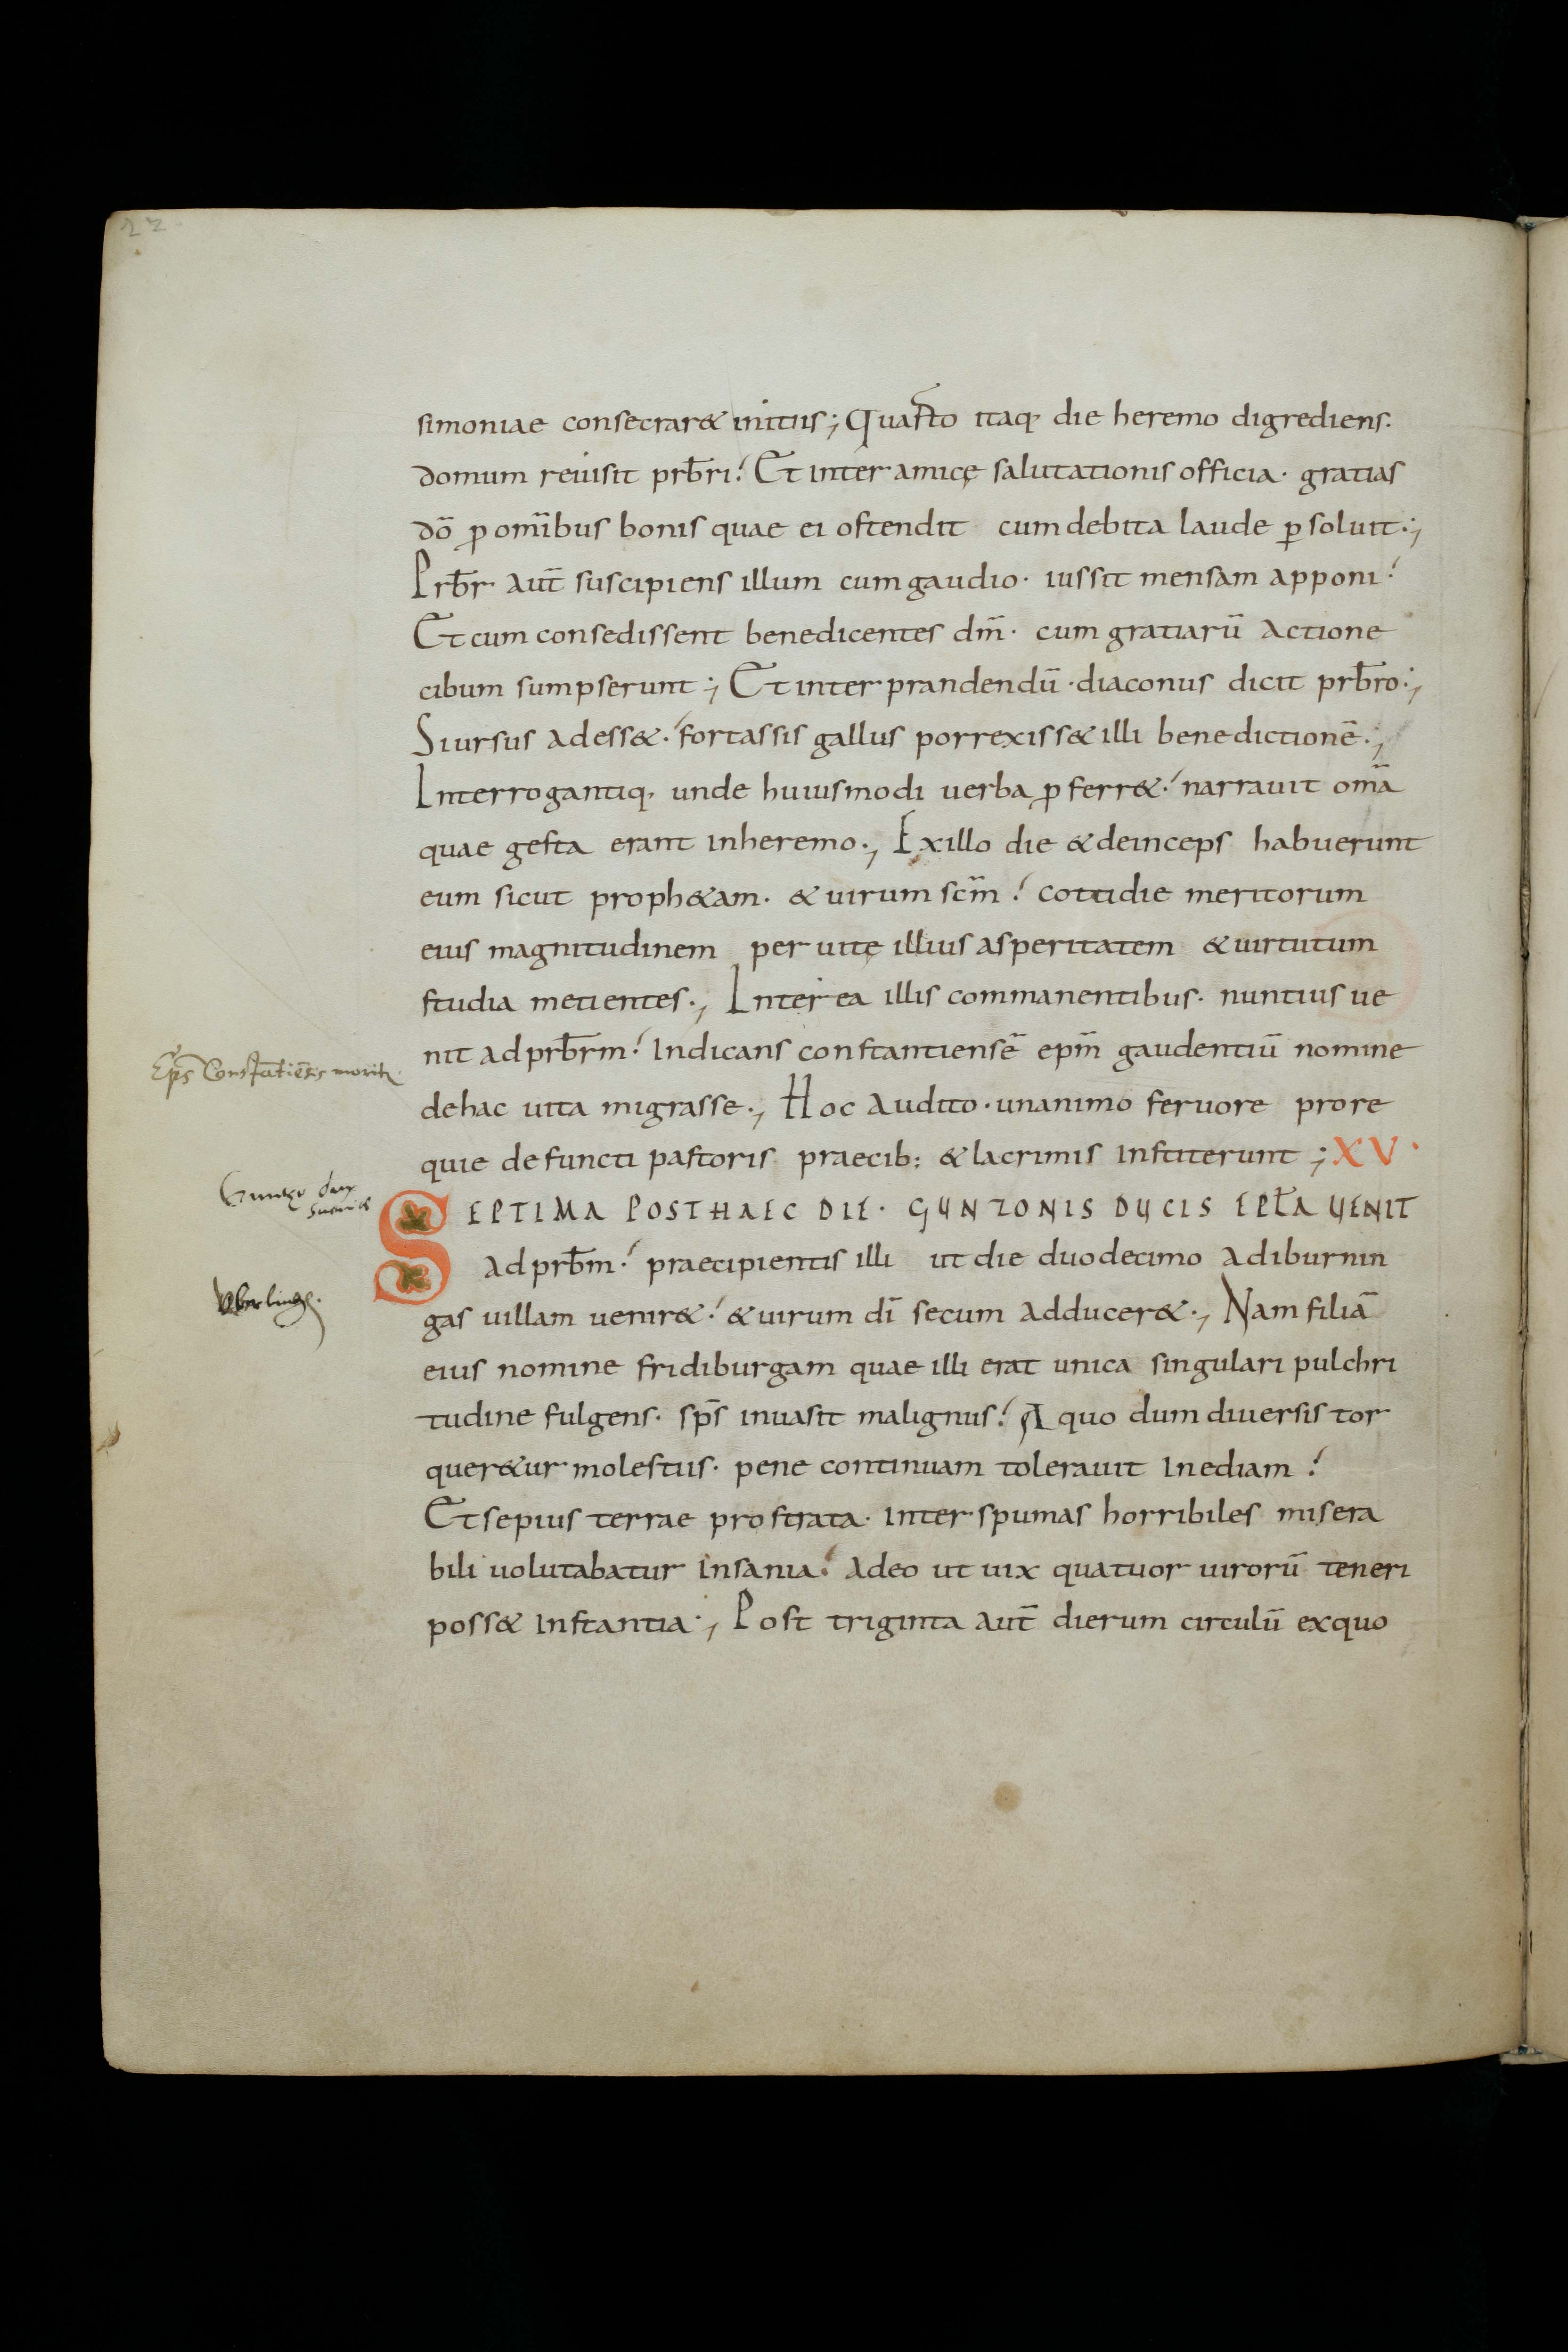 22
simoniae consecrar& initiis; Quarto itaq; die heremo digrediens.
domum reuisit prb̄ri! Et inter amicę salutationis officia· gratias
dō ꝓ om̄ibus bonis quae ei ostendit cum debita laude ꝑsoluit.,
Prb̄r aut̄ suscipiens illum cum gaudio· iussit mensam apponi!
Et cum consedissent benedicentes dm̄· cum gratiarū actione
cibum sumpserunt; Et inter prandendū· diaconus dicit prb̄ro.,
Si ursus adess&! fortassis gallus porrexiss& illi benedictionē.,
Interrogantiq; unde huiusmodi uerba ꝓferr&! narrauit om̄a
quae gesta erant in heremo., Ex illo die & deinceps habuerunt
eum sicut proph&am. & uirum scm̄! cottidie meritorum
eius magnitudinem per uitę illius asperitatem & uirtutum
studia metientes., Interea illis commanentibus. nuntius ue
nit ad prb̄rm! Indicans constantiensē epm̄ gaudentiū nomine
Ep̄s Constātiēsis morit̄
de hac uita migrasse., Hoc audito· unanimo feruore pro re
quie defuncti pastoris praecib: & lacrimis institerunt; XV·
Guntzo dux
Sueuiæ
SEPTIMA POST HAEC DIE· GUNZONIS DUCIS EPĿA UENIT
ad prb̄m! praecipientis illi ut die duodecimo ad iburnin
Vberlingē.
gas uillam uenir&! & uirum dī secum adducer&., Nam filiā
eius nomine fridiburgam quae illi erat unica singulari pulchri
tudine fulgens. sp̄s inuasit malignus! A quo dum diuersis tor
quer&ur molestiis. pene continuam tolerauit inediam!
Et sepius terrae prostrata· inter spumas horribiles misera
bili uolutabatur insania! adeo ut uix quatuor uirorū teneri
poss& instantia., Post triginta aut̄ dierum circulū ex quo